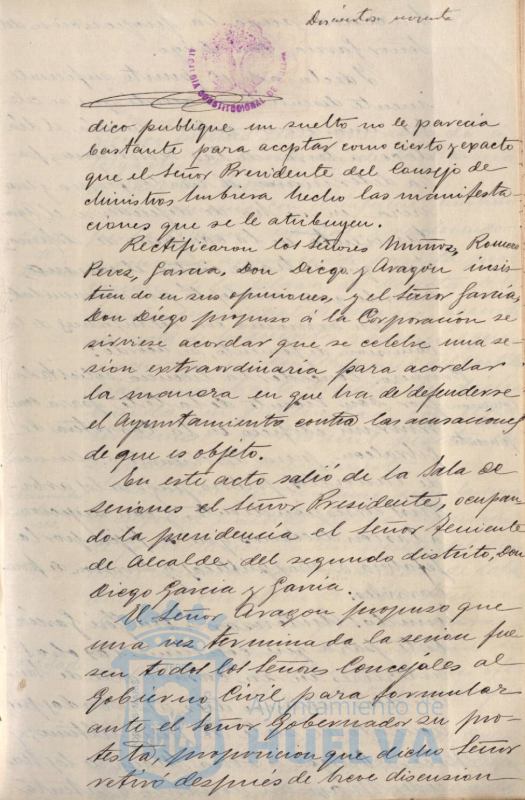 Doscientos noventa
ALCALDIA CONSTITUCIONAL DE
dico publique un suelto no le parecia
bastante para aceptar como cierto y exacto
que el Señor Presidente del Consejo de
Ministros hubiera hecho las manifesta-
ciones que se le atribuyen.
Rectificaron los Señores Muñoz, Romero
Perez, Garcia, Don Diego y Aragon insis-
tiendo en sus opiniones, y el Señor Garcia,
Don Diego propuso á la Corporación se
sirviese acordar que se celebre una se-
sion extraordinaria para acordar
la manera en que ha de defenderse
el Ayuntamiento contra las acusaciones
de que es objeto.
En este acto salió de la Sala de
sesiones el Señor Presidente, ocupan-
do la presidencia el Señor Teniente
de Alcalde del segundo distrito, Don
Diego Garcia y Garcia.
El Señor Aragon propuso que
una vez terminada la sesion fue-
sen todos los Señores Concejales al
Gobierno Civil para formular
ante el Señor Gobernador su pro-
testa, proposicion que dicho Señor
retiró después de breve discusion
Ayuntamiento de
HUELVA